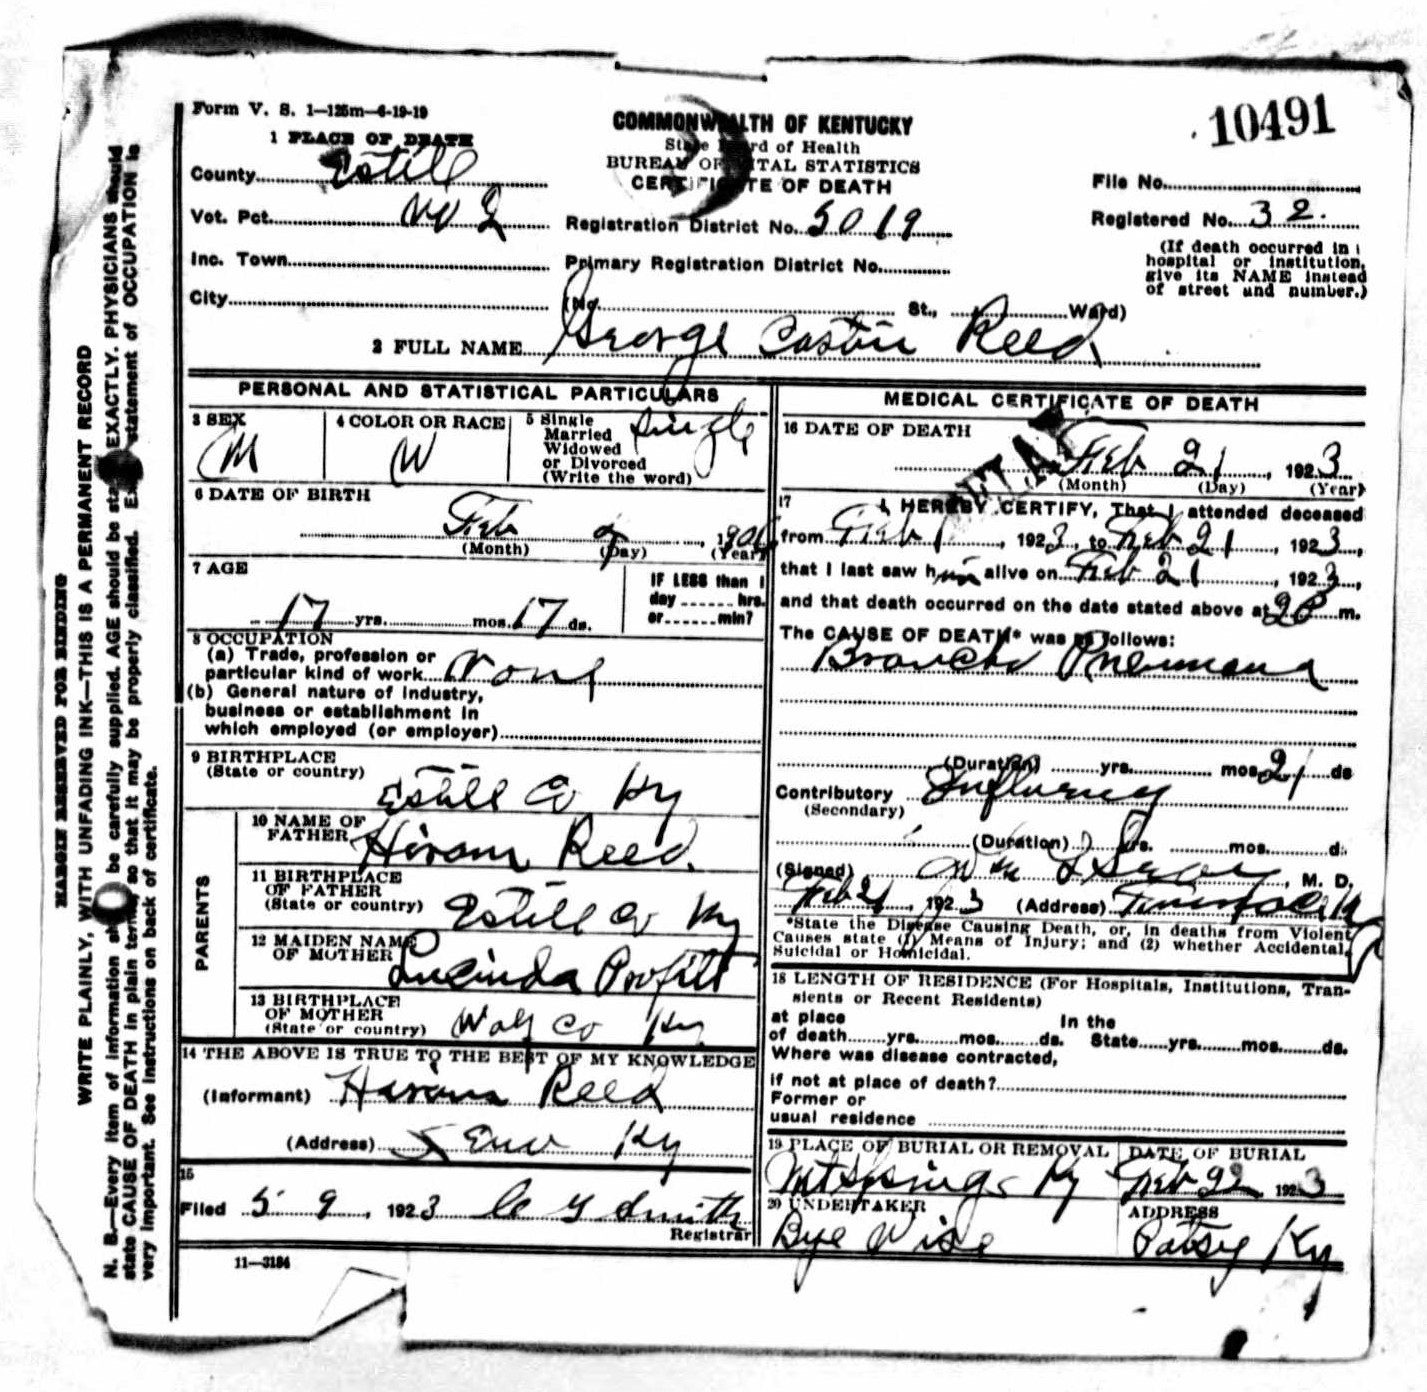 10491
Form V. S. 1—125m—6-19-19
COMMONWEALTH OF KENTUCKY
State Board of Health
BUREAU OF VITAL STATISTICS
CERTIFICATE OF DEATH
1 PLACE OF DEATH
County Estill
Vot. Pct. No 2
Inc. Town
City
Registration District No. 5019
Primary Registration District No.
(No. St., Ward)
File No.
Registered No. 32.
(If death occurred in
hospital or institution,
give its NAME instead
of street and number.)
2 FULL NAME George Castin Reed
PERSONAL AND STATISTICAL PARTICULARS
3 SEX
M
4 COLOR OR RACE
W
5 Single
Married
Widowed
or Divorced
(Write the word)
Single
6 DATE OF BIRTH
Feb
(Month) (Day) (Year)
7 AGE
17 yrs. mos. 17 ds.
IF LESS than 1
day ...... hrs.
or ...... min?
8 OCCUPATION
(a) Trade, profession or
particular kind of work None
(b) General nature of industry,
business or establishment in
which employed (or employer)
9 BIRTHPLACE
(State or country)
Estill Co Ky
PARENTS
10 NAME OF
FATHER Hiram Reed.
11 BIRTHPLACE
OF FATHER
(State or country) Estill Co Ky
12 MAIDEN NAME
OF MOTHER Lucinda Profitt
13 BIRTHPLACE
OF MOTHER
(State or country) Co Ky
14 THE ABOVE IS TRUE TO THE BEST OF MY KNOWLEDGE
(Informant) Hiram Reed
(Address) Ky
15
Filed 5 9, 1923 Smith
Registrar
11—3184
MEDICAL CERTIFICATE OF DEATH
16 DATE OF DEATH
Feb 21, 1923
(Month) (Day) (Year)
17 I HEREBY CERTIFY, That I attended deceased
from Feb 1, 1923, to Feb 21, 1923,
that I last saw him alive on Feb 21, 1923,
and that death occurred on the date stated above at m.
The CAUSE OF DEATH* was as follows:
Broncho Pneumonia
(Duration) yrs. mos. 21 ds
Contributory Influenza
(Secondary)
(Duration) yrs. mos. d.
(Signed) Wm , M. D.
Feb 21, 1923 (Address)
*State the Disease Causing Death, or, in deaths from Violent
Causes state (1) Means of Injury; and (2) whether Accidental,
Suicidal or Homicidal.
18 LENGTH OF RESIDENCE (For Hospitals, Institutions, Tran-
sients or Recent Residents)
at place In the
of death yrs. mos. ds. State yrs. mos. ds.
Where was disease contracted,
if not at place of death?
Former or
usual residence
19 PLACE OF BURIAL OR REMOVAL
Mt Springs Ky
DATE OF BURIAL
Feb 22 1923
20 UNDERTAKER
Bye Wise
ADDRESS
Patsy Ky
MARGIN RESERVED FOR BINDING
WRITE PLAINLY, WITH UNFADING INK—THIS IS A PERMANENT RECORD
N. B.—Every item of information should be carefully supplied. AGE should be stated EXACTLY. PHYSICIANS should
state CAUSE OF DEATH in plain terms, so that it may be properly classified. Exact statement of OCCUPATION is
very important. See instructions on back of certificate.